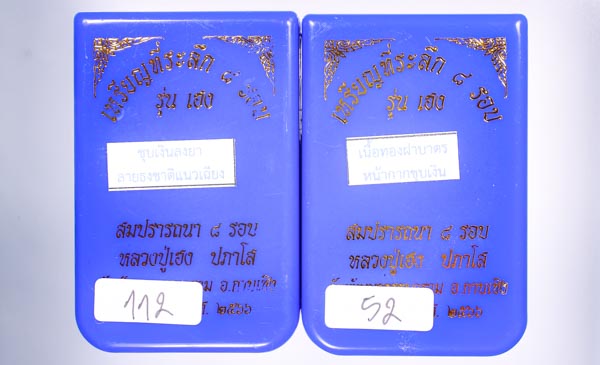 เหรียญที่ระลึก ๘ รอบ
รุ่น เฮง
ชุบเงินลงยา
ลายธงชาติแนวเฉียง
สมปรารถนา ๘ รอบ
หลวงปู่เฮง ปภาโส
อ.กาบเชิง
๒๕๖๖
112
เหรียญที่ระลึก ๘ รอบ
รุ่น เฮง
เนื้อทองฝาบาตร
หน้ากากชุบเงิน
สมปรารถนา ๘ รอบ
หลวงปู่เฮง ปภาโส
อ.กาบเชิง
๒๕๖๖
52